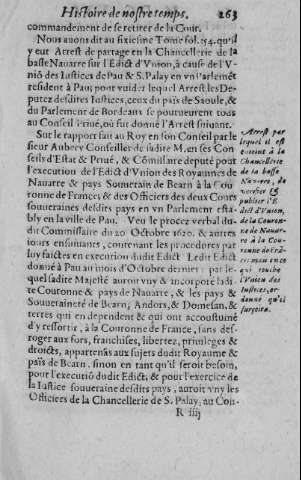 Histoire de nostre temps. 263
commandement de se retirer de la Cour.
Nous auons dit au sixiesme Tome fol. 54. qu'il
y eut Arrest de partage en la Chancellerie de la
basse Nauarre sur l'Edict d'Vnion, à cause de l'V-
niõ des Iustices de Pau & S. Palay en vn Parlemẽt
resident à Pau; pour vuider lequel Arrest les De-
putez desdites Iustices, ceux du païs de Saoule, &
du Parlement de Bordeaux se pourueurent tous
au Conseil Priué, où fut donné l'Arrest suiuant.
Sur le rapport fait au Roy en son Conseil par le
sieur Aubery Conseiller de sadite M. en ses Con-
seils d'Estat & Priué, & Cõmissaire deputé pour
l'execution de l'Edict d'Vnion des Royaumes de
Nauarre & pays Souuerain de Bearn à la Cou-
ronne de France, & des Officiers des deux Cours
souueraines desdits pays en vn Parlement esta-
bly en la ville de Pau. Veu le procez verbal du-
dit Commissaire du 20 Octobre 1620. & autres
iours ensuiuants, contenant les procedures par
luy faictes en execution dudit Edict. Ledit Edict
donné à Pau au mois d'Octobre dernier: par le-
quel sadite Majesté auroit vny & incorporé ladi-
te Couronne & pays de Nauarre, & les pays &
Souueraineté de Bearn; Andorx, & Donesan, &
terres qui en dependent & qui ont accoustumé
d'y ressortir, à la Couronne de France, sans des-
roger aux fors, franchises, libertez, priuileges &
droicts, appartenãs aux sujets dudit Royaume &
païs de Bearn, sinon en tant qu'il seroit besoin,
pour l'executiõ dudit Edict, & pour l'exercice de
la Iustice souueraine desdits pays, auroit vny les
Officiers de la Chancellerie de S. Palay, au Con-
R iiij
Arrest par
lequel il est
enioint à la
Chancellerie
de la basse
Nauarre, de
verifier &
publier l'E
dict d'Vnion,
de la Couron-
ne de Nauar-
re à la Cou-
ronne de Frã-
ce: mais en ce
qui touche
l'Vnion des
Iustices, or-
donné qu'il
surçoira.